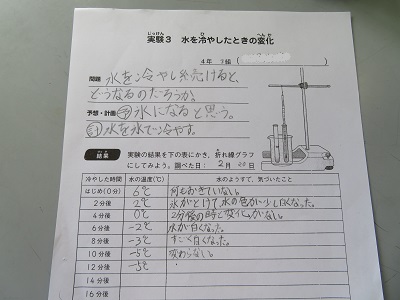 じっけん ひ へんか
実験3 水を冷やしたときの変化
4年 3組(
問題 水を冷やし続けると、
どうなるのだろうか。
予想・計画 予 氷になると思う。
計 水を氷で冷やす。
結果 実験の結果を下の表にかき、折れ線グラフ
にしてみよう。調べた日: 2月20日
冷やした時間 水の温度(℃) 水のようすで、気づいたこと
はじめ(0分) 6℃ 何もおきていない。
2分後 2℃ 氷がとけて、水の色が少し白くなった。
4分後 0℃ 2分後の時と変化がない。
6分後 -2℃ 氷が白くなった。
8分後 -3℃ すごく白くなった。
10分後 -5℃ 変わらない。
12分後 -5℃
14分後
16分後